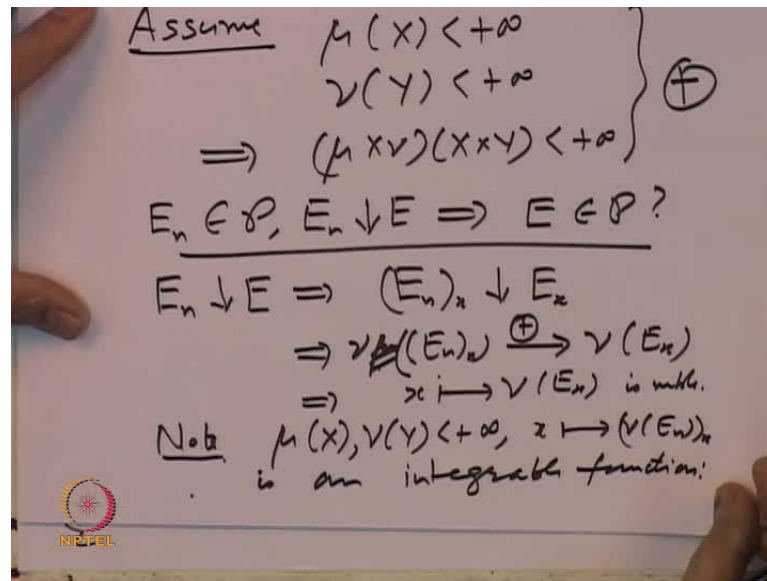 Assume μ(X) < +∞
ν(Y) < +∞
⟹ (μ×ν)(X×Y) < +∞ } ⊕
Eₙ ∈ 𝒫, Eₙ ↓ E ⟹ E ∈ 𝒫?
Eₙ ↓ E ⟹ (Eₙ)ₓ ↓ Eₓ
⟹ ν((Eₙ)ₓ) ⊕⟶ ν(Eₓ)
⟹ x ⟼ ν(Eₓ) is mble.
Note μ(X), ν(Y) < +∞, x ⟼ (ν(Eₙ))ₓ
is an integrable function.
NPTEL